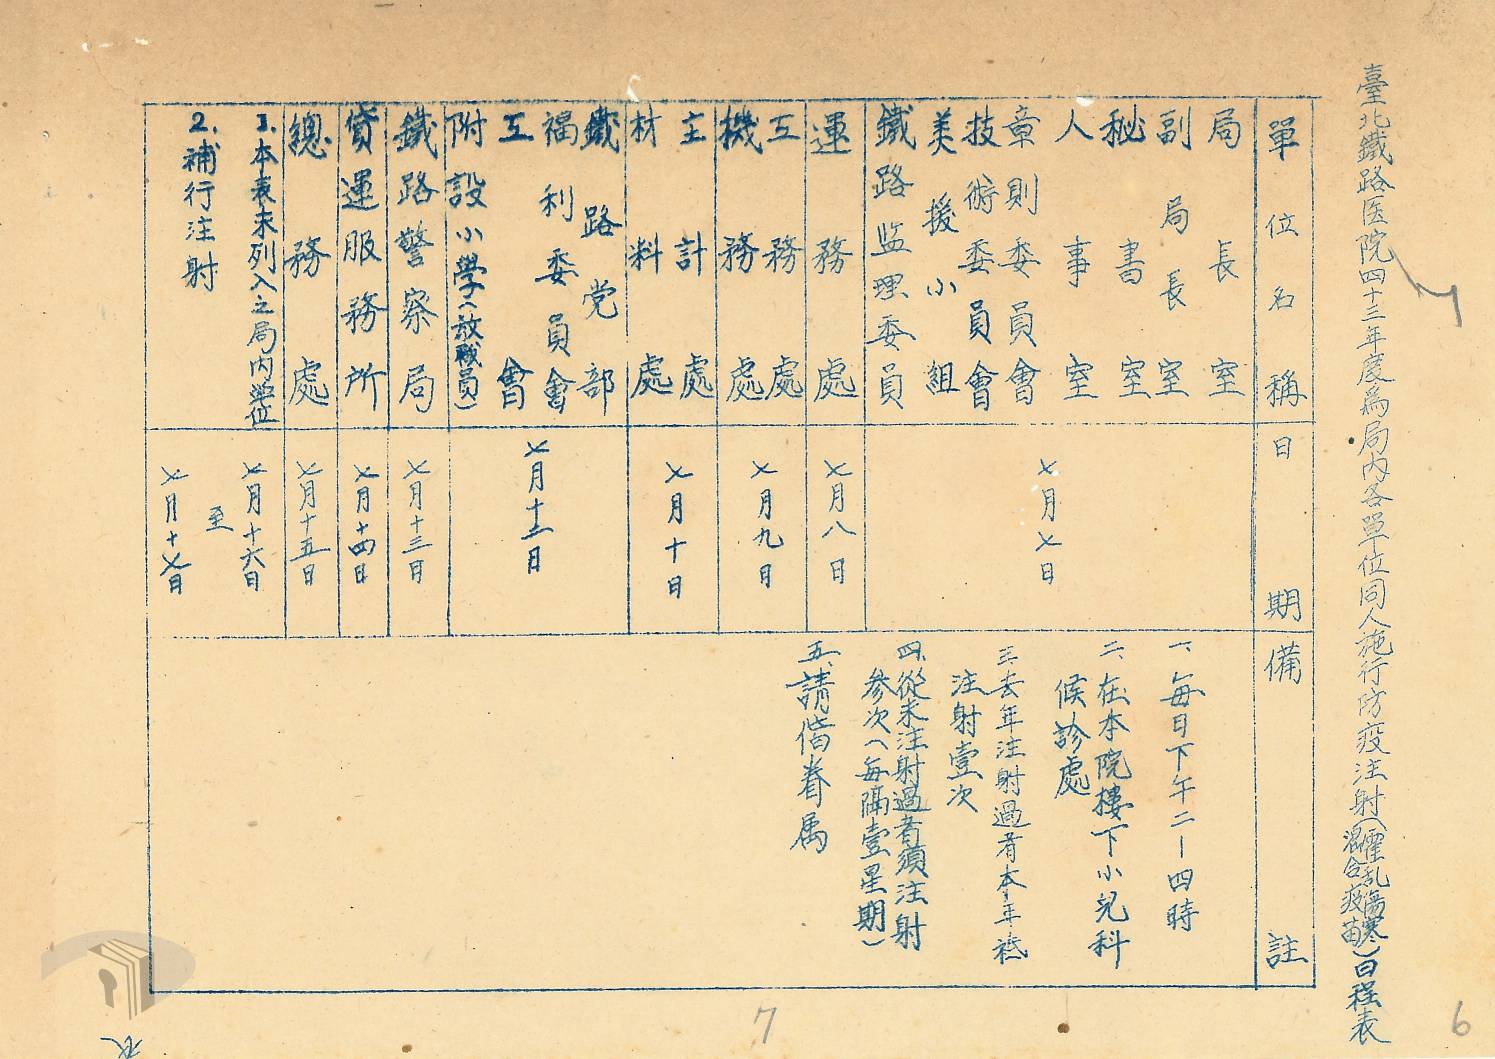 臺北鐵路医院四十三年度為局內各單位同人施行防疫注射(霍乱傷寒混合疫苗)日程表
單位名稱
日期
備註
局長室
副局長室
秘書室
人事室
章則委員會
技術委員會
美援小組
鐵路監理委員
七月七日
運務處
七月八日
工務處
機務處
七月九日
主計處
材料處
七月十日
鐵路党部
福利委員會
工會
附設小學(教職員)
七月十二日
鐵路警察局
七月十三日
貨運服務所
七月十四日
總務處
七月十五日
1.本表未列入之局內單位
2.補行注射
七月十六日
至
七月十七日
一、每日下午二—四時
二、在本院樓下小兒科
候診處
三、去年注射過者本年祗
注射壹次
四、從未注射過者須注射
參次(每隔壹星期)
五、請偕眷属
7
6